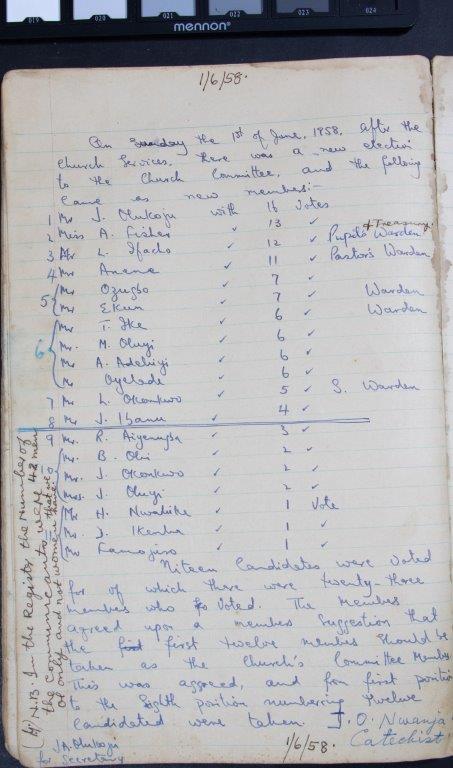 019 020 021 022 023 024
mennon®
1/6/58.
On Sunday the 1st of June, 1958, after the
Church Services, there was a new election
to the Church Committee, and the following
came as new members:-
1 Mr J. Olukoju with 16 Votes
2 Miss A. Fisher ✓ 13 ✓ Pupils Warden + Treasurer
3 Mr L. Ifado ✓ 12 ✓ Pastor's Warden
4 Mr Anene ✓ 11 ✓
5 Mr Ozugbo ✓ 7 ✓ Warden
Mr Ekun ✓ 7 ✓ Warden
6 Mr T. Ike ✓ 6 ✓
Mr M. Oluyi ✓ 6 ✓
Mr A. Adebiyi ✓ 6 ✓
Mr Oyelade ✓ 6 ✓
7 Mr L. Okonkwo ✓ 5 ✓ S. Warden
8 Mr J. Ibanu ✓ 4 ✓
9 Mr. R. ✓ 3 ✓
Mr B. Obi ✓ 2 ✓
Mr J. Okonkwo ✓ 2 ✓
Mrs. J. Oluyi ✓ 2 ✓
Mr H. ✓ 1 Vote
Mr J. ✓ 1 ✓
Mr Famojuro ✓ 1 ✓
Niteen Candidates were voted
for of which there were twenty-three
members who voted. The members
agreed upon a members suggestion that
the first first twelve members should be
taken as the Church's Committee Members
This was aggreed, and from first position
to the Eighth position numbering twelve
Candidated were taken. J. O. Nwanja
1/6/58. Catechist
J.A. Olukoju
for Secretary
N.B. In the Register the Number of
the Communicants were 42 men
only and not women